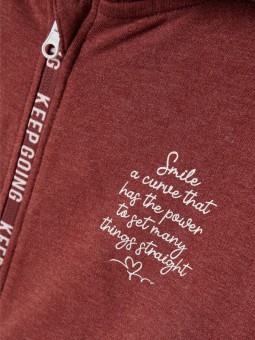 KEEP GOING
KEEP
Smile
a curve that
has the power
to set many
things straight